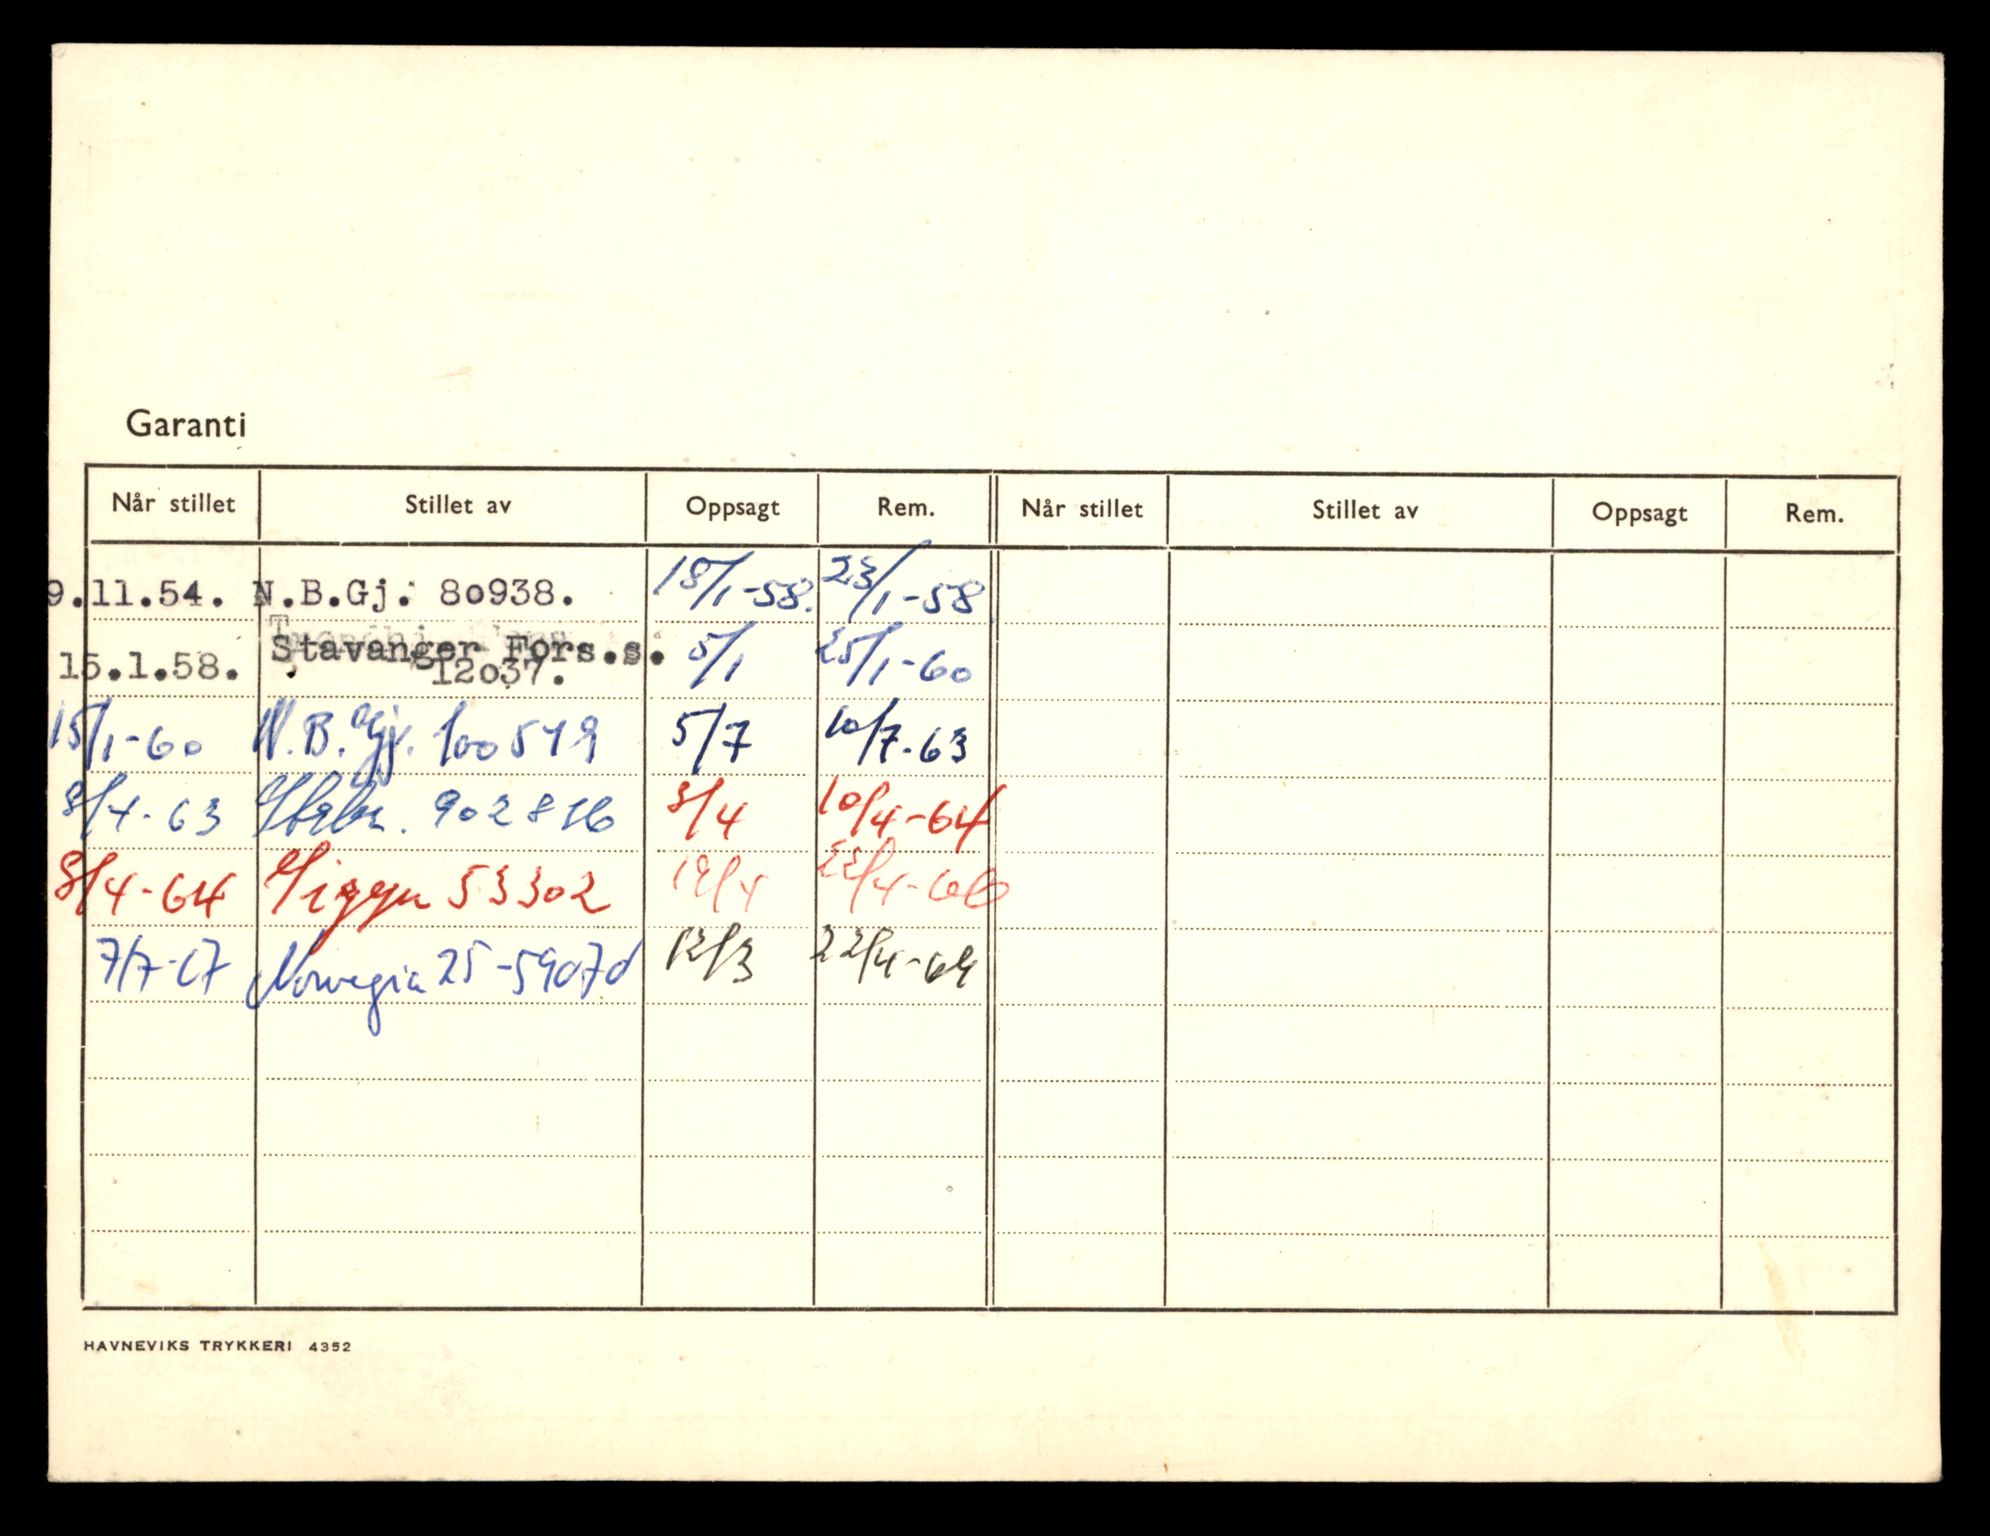 Garanti
Når stillet Stillet av Oppsagt Rem. Når stillet Stillet av Oppsagt Rem.
9.11.54. N.B.Gj. 80938. 18/1-58. 23/1-58
15.1.58. Stavanger Fors.s. 12037. 5/1 25/1-60
15/1-60 N.B.Gj. 100579 5/7 10/7-63
8/7-63 902876 3/4 10/4-64
8/4-64 Sigyn 53302 19/4 22/4-66
7/7-67 Norwegia 25-59070 12/3 22/4-69
HAVNEVIKS TRYKKERI 4352